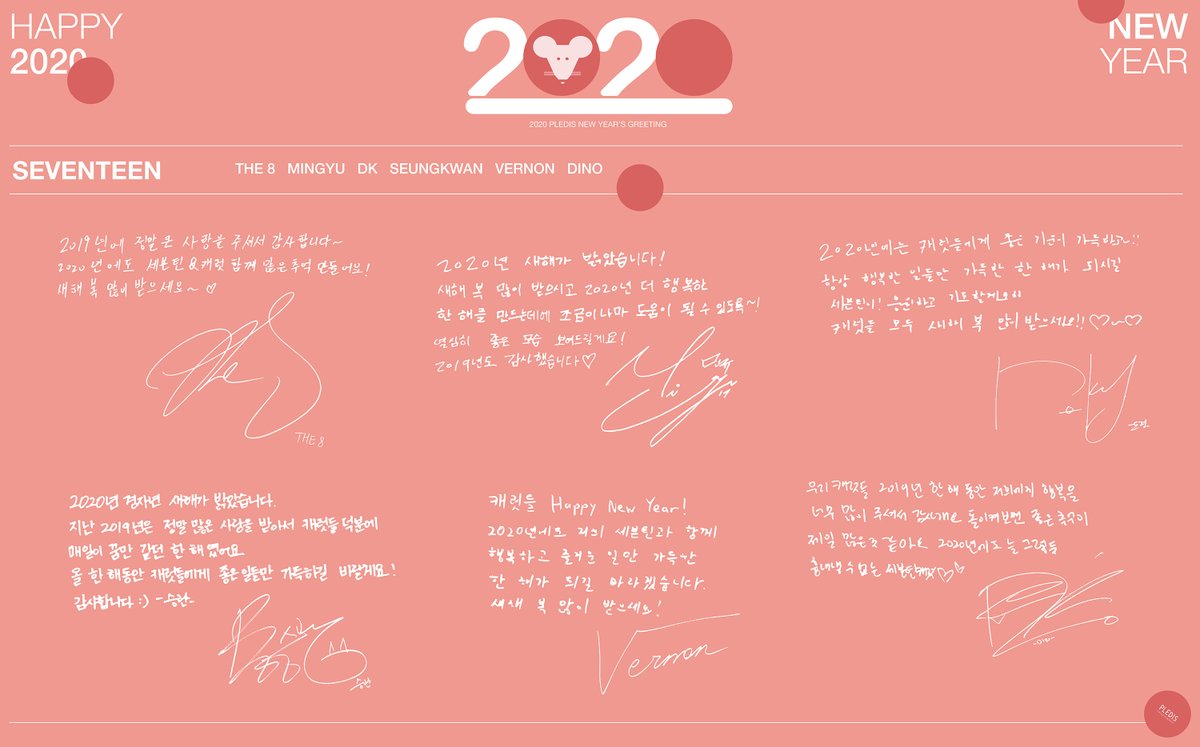 HAPPY
2020
2020
2020 PLEDIS NEW YEAR'S GREETING
NEW
YEAR
SEVENTEEN
THE 8 MINGYU DK SEUNGKWAN VERNON DINO
2019년에 정말 큰 사랑을 주셔서 감사합니다~
2020년에도 세븐틴 & 캐럿 함께 많은 추억 만들어요!
새해 복 많이 받으세요~ ♡
The 8
THE 8
2020년 새해가 밝았습니다!
새해 복 많이 받으시고 2020년 더 행복한
한 해를 만드는데에 조금이나마 도움이 될 수 있도록~!
열심히 좋은 모습 보여드릴게요!
2019년도 감사했습니다♡
민규
2020년에는 캐럿들에게 좋은 기운이 가득하고!!
항상 행복한 일들만 가득한 한 해가 되시길
세븐틴이! 응원하고 기도할게요
캐럿들 모두 새해 복 많이 받으세요!! ♡~♡
도겸
2020년 경자년 새해가 밝았습니다.
지난 2019년은 정말 많은 사랑을 받아서 캐럿들 덕분에
매일이 꿈만 같던 한 해였어요
올 한 해동안 캐럿들에게 좋은 일들만 가득하길 바랄게요!
감사합니다 :) -승관-
승관
캐럿들 Happy New Year!
2020년에도 저희 세븐틴과 함께
행복하고 즐거운 일만 가득한
한 해가 되길 바라겠습니다.
새해 복 많이 받으세요!
Vernon
우리 캐럿들 2019년 한 해 동안 저희에게 행복을
너무 많이 주셔서 감사해요 돌이켜보면 좋은 추억이
제일 많은 것 같아요 2020년에도 늘 그렇듯
세븐틴 캐럿♡♡
PLEDIS